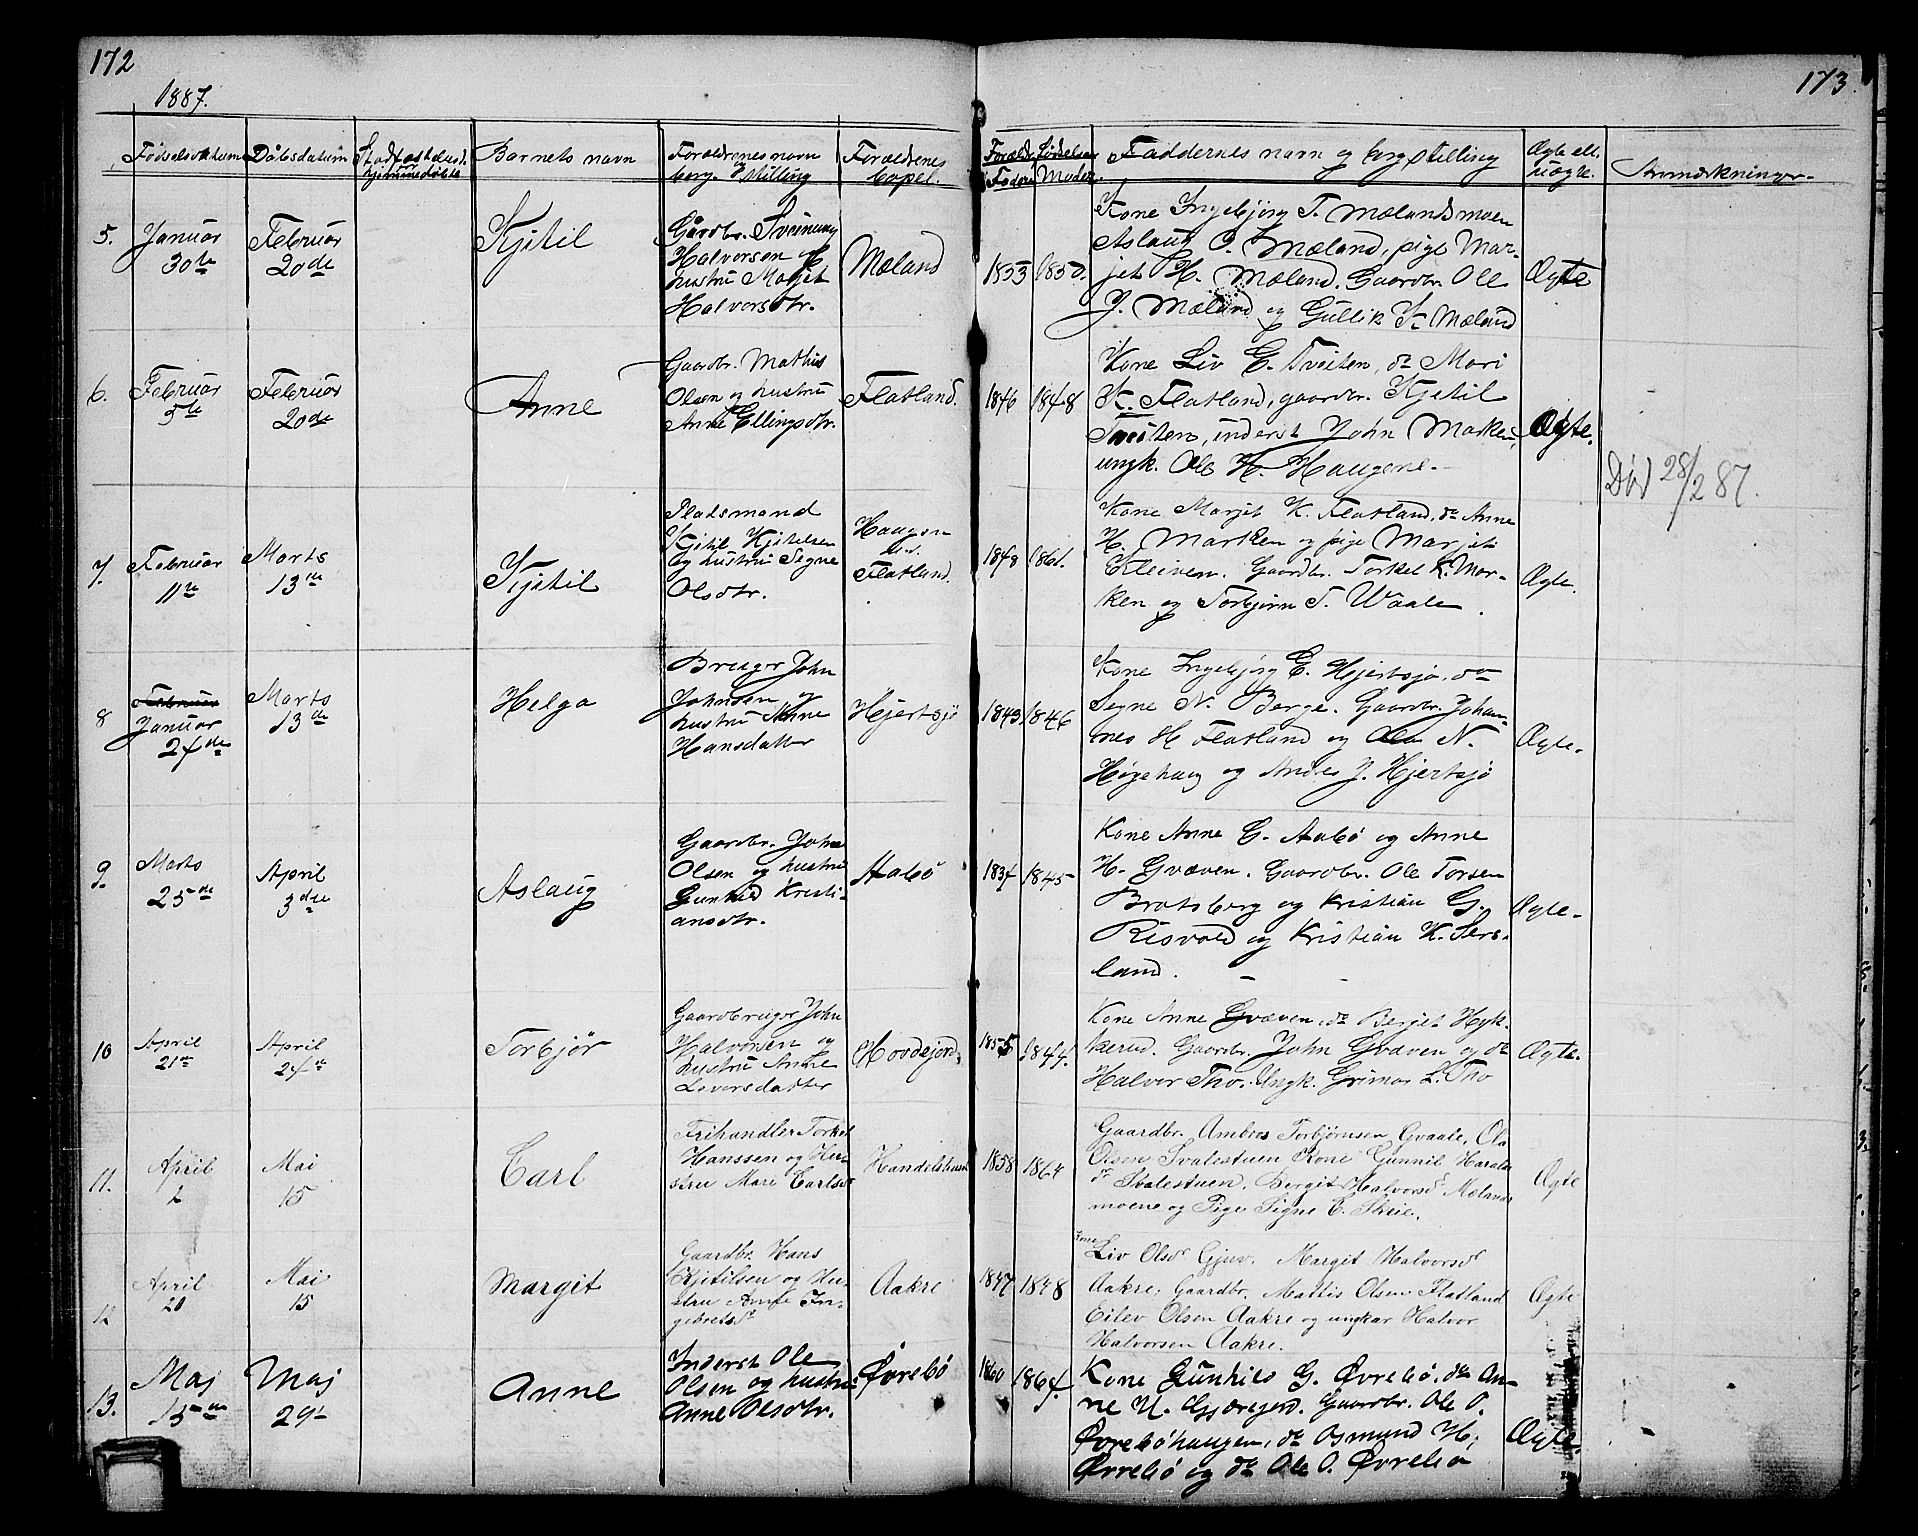 172
1887.
173.
Fødselsdatum
Dåbsdatum
Barnets navn
Forældrenes navn
og stilling
Forældrenes
bopel.
Forældr. fødselsaar
Fader Moder.
Faddernes navn og borg. stilling
Ægte ell.
uægte.
Anmærkninger.
5. Januar
30te
Februar
20de
Kjitil
Gårdbr. Sveinung
Halvorsen og
hustru Marjit
Halvorsdtr.
Mæland
1853 1850.
Kone Ingebjörg T. Mælandsmoen
Aslaug O. Mæland, pige Mar-
jit H. Mæland. Gaardbr. Ole
J. Mæland og Gullik K. Mæland
Ægte
6. Februar
5te
Februar
20de
Anne
Gaardbr. Mathis
Olsen og hustru
Anne Ellingsdtr.
Flatland.
1846 1848
Kone Liv E. Tveiten, do Mari
K. Flatland, gaardbr. Kjetil
Tveiten, inderst John Marken,
ungk. Ole H. Haugene.
Ægte.
Död 28/2 87.
7. Februar
11te
Marts
13de
Kjitil
Pladsmand
Kjitil Kjitelsen
og hustru Signe
Olsdtr.
Haugen
u.
Flatland.
1848 1861.
Kone Marjit K. Flatland, do Anne
H. Marken og pige Marjit
Erleiven. Gaardbr. Torkel K. Mar-
ken og Torbjörn T. Waale.
Ægte.
8 Februar
Januar
24de
Marts
13de
Helga
Bruger John
Johnsen og
hustru Anne
Hansdatter
Hjertsjö
1843 1846
Kone Ingebjörg E. Hjertsjø, do
Signe N. Berge. Gaardbr. Johan-
nes H Flatland og Ola N.
Høgehaug og Andres J. Hjertsjø
Ægte.
9. Marts
25de
April
3die
Aslaug
Gaardbr. John
Olsen og hustru
Gunhild Kristi-
ansdtr.
Aabö
1834 1845
Kone Anne G. Aabö og Anne
H. Gvæven. Gaardbr. Ole Torsen
Bratsberg og Kristian G.
Risvold og Kristian K. Sers-
land.
Ægte.
10 April
21de
April
24de
Torbjør
Gaardbruger John
Halvorsen og
hustru Anne
Leversdatter
Hovdejord.
1855 1844.
Kone Anne Gvæven, do Berjit Hyk-
kerud. Gaardbr. John Gvæven og do
Halvor Tho. Ungk. Grimar L. Tho
Ægte.
11. April
2
Mai
15
Carl
Frihandler Torkel
Hanssen og Hu-
stru Mari Carlsdr
Handelshuset
1858 1864
Gaardbr. Ambros Torbjørnsen Gvaale, Ola
Olsen Svalestuen Kone Gunnil Haralds
dr Svalestuen, Bergit Halvorsdr Mælands
moene og Pige Signe E. Skeie.
Ægte
12 April
20
Mai
15
Margit
Gaardbr. Hans
Kjetilsen og Hu-
stru Anne In-
gebretsdr
Aakre
1847 1848
Kone
Liv Olsdr Gjuv. Margit Halvorsdr
Aakre, Gaardbr. Mattis Olsen Flatland
Eilev Olsen Aakre og ungkar Halvor
Halvorsen Aakre.
Ægte
13. Maj
15de
Maj
29.
Anne
Inderst Ole
Olsen og hustru
Anne Olsdtr.
Øvrebö
1860 1864.
Kone Gunhild G. Øvrebö, do An-
ne N. Gjøregord. Gaardbr. Ole O.
Øvrebøhaugen, do Osmund H.
Øvrebö og do Ole O. Øvrebø
Ægte.